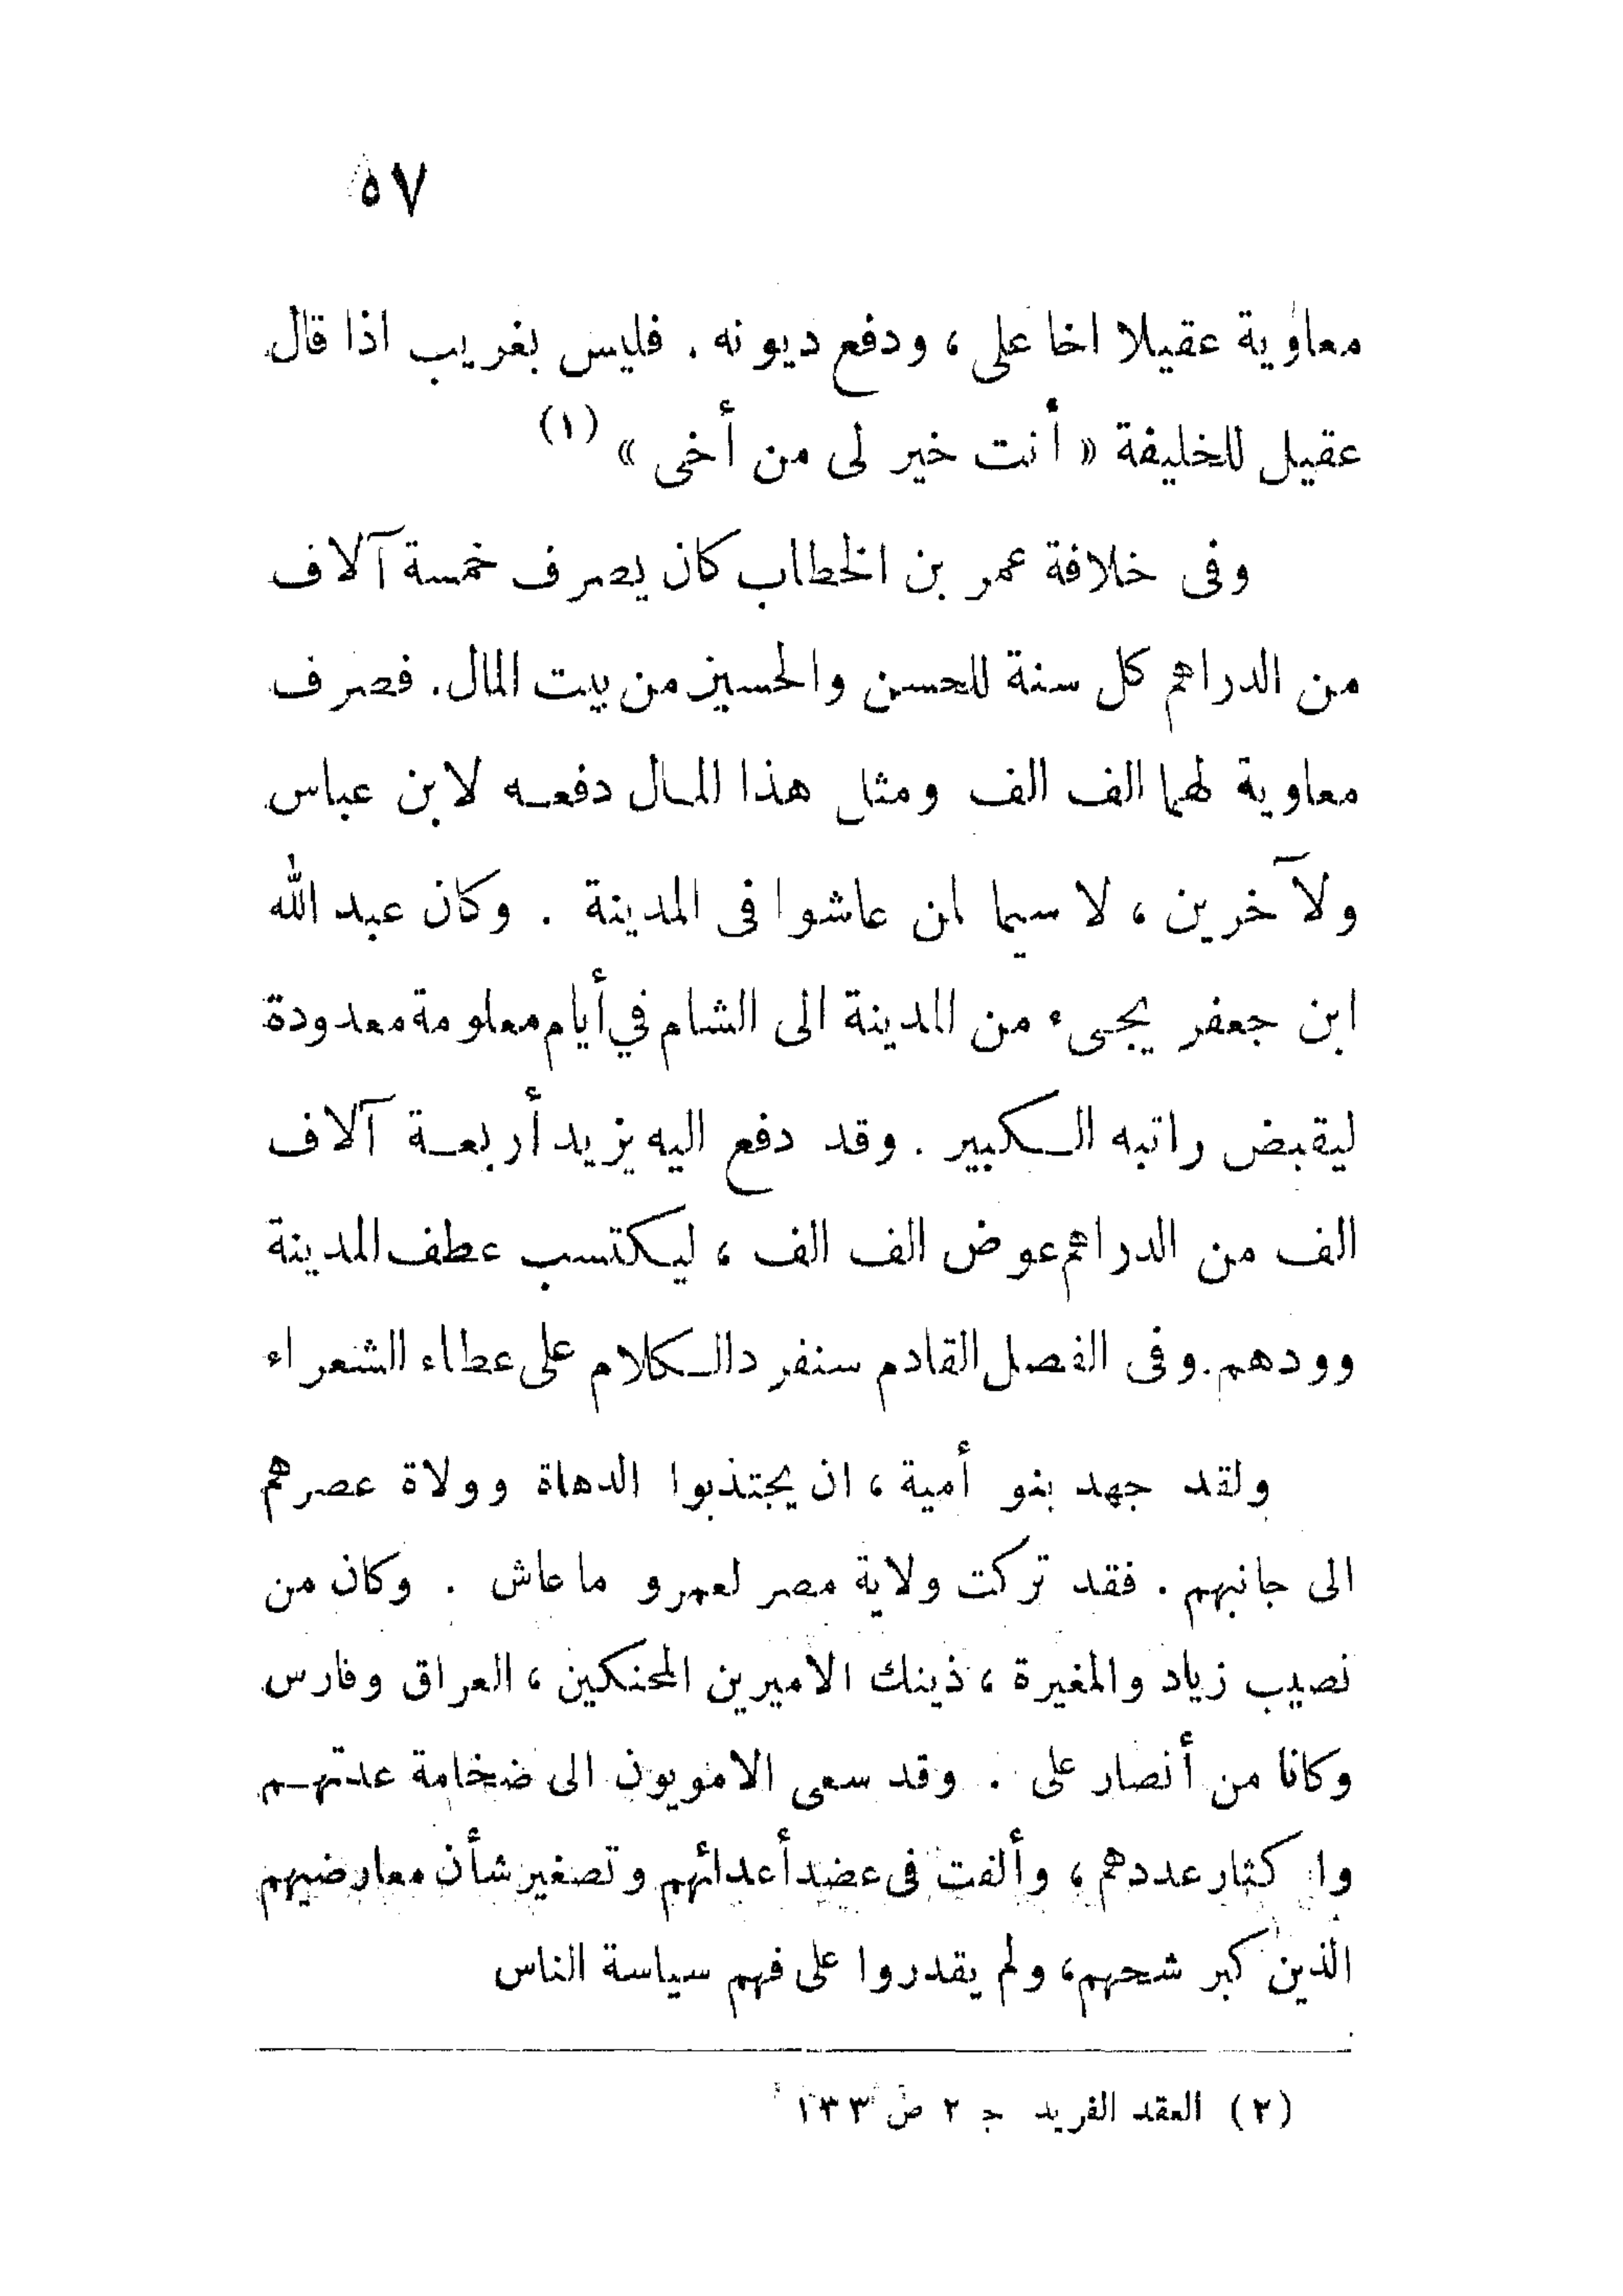 ٥٧
معاوية عقيلا اخا على ، ودفع ديونه . فليس بغريب اذا قال
عقيل للخليفة « أنت خير لى من أخى » (١)
وفى خلافة عمر بن الخطاب كان يصرف خمسة آلاف
من الدراهم كل سنة للحسن والحسين من بيت المال . فصرف
معاوية لهما الف الف ومثل هذا المال دفعه لابن عباس
ولآخرين ، لا سيما لمن عاشوا فى المدينة . وكان عبد الله
ابن جعفر يجىء من المدينة الى الشام في أيام معلومة معدودة
ليقبض راتبه الكبير . وقد دفع اليه يزيد أربعة آلاف
الف من الدراهم عوض الف الف ، ليكتسب عطف المدينة
وودهم . وفى الفصل القادم سنفرد الكلام على عطاء الشعراء
ولقد جهد بنو أمية ، ان يجتذبوا الدهاة وولاة عصرهم
الى جانبهم . فقد تركت ولاية مصر لعمرو ما عاش . وكان من
نصيب زياد والمغيرة ، ذينك الاميرين المحنكين ، العراق وفارس
وكانا من أنصار على . وقد سعى الامويون الى ضخامة عدتهم
واكثار عددهم ، وألفت فى عضد أعدائهم وتصغير شأن معارضيهم
الذين كبر شحهم ، ولم يقدروا على فهم سياسة الناس
(٢) العقد الفريد ج ٢ ص ١٣٣